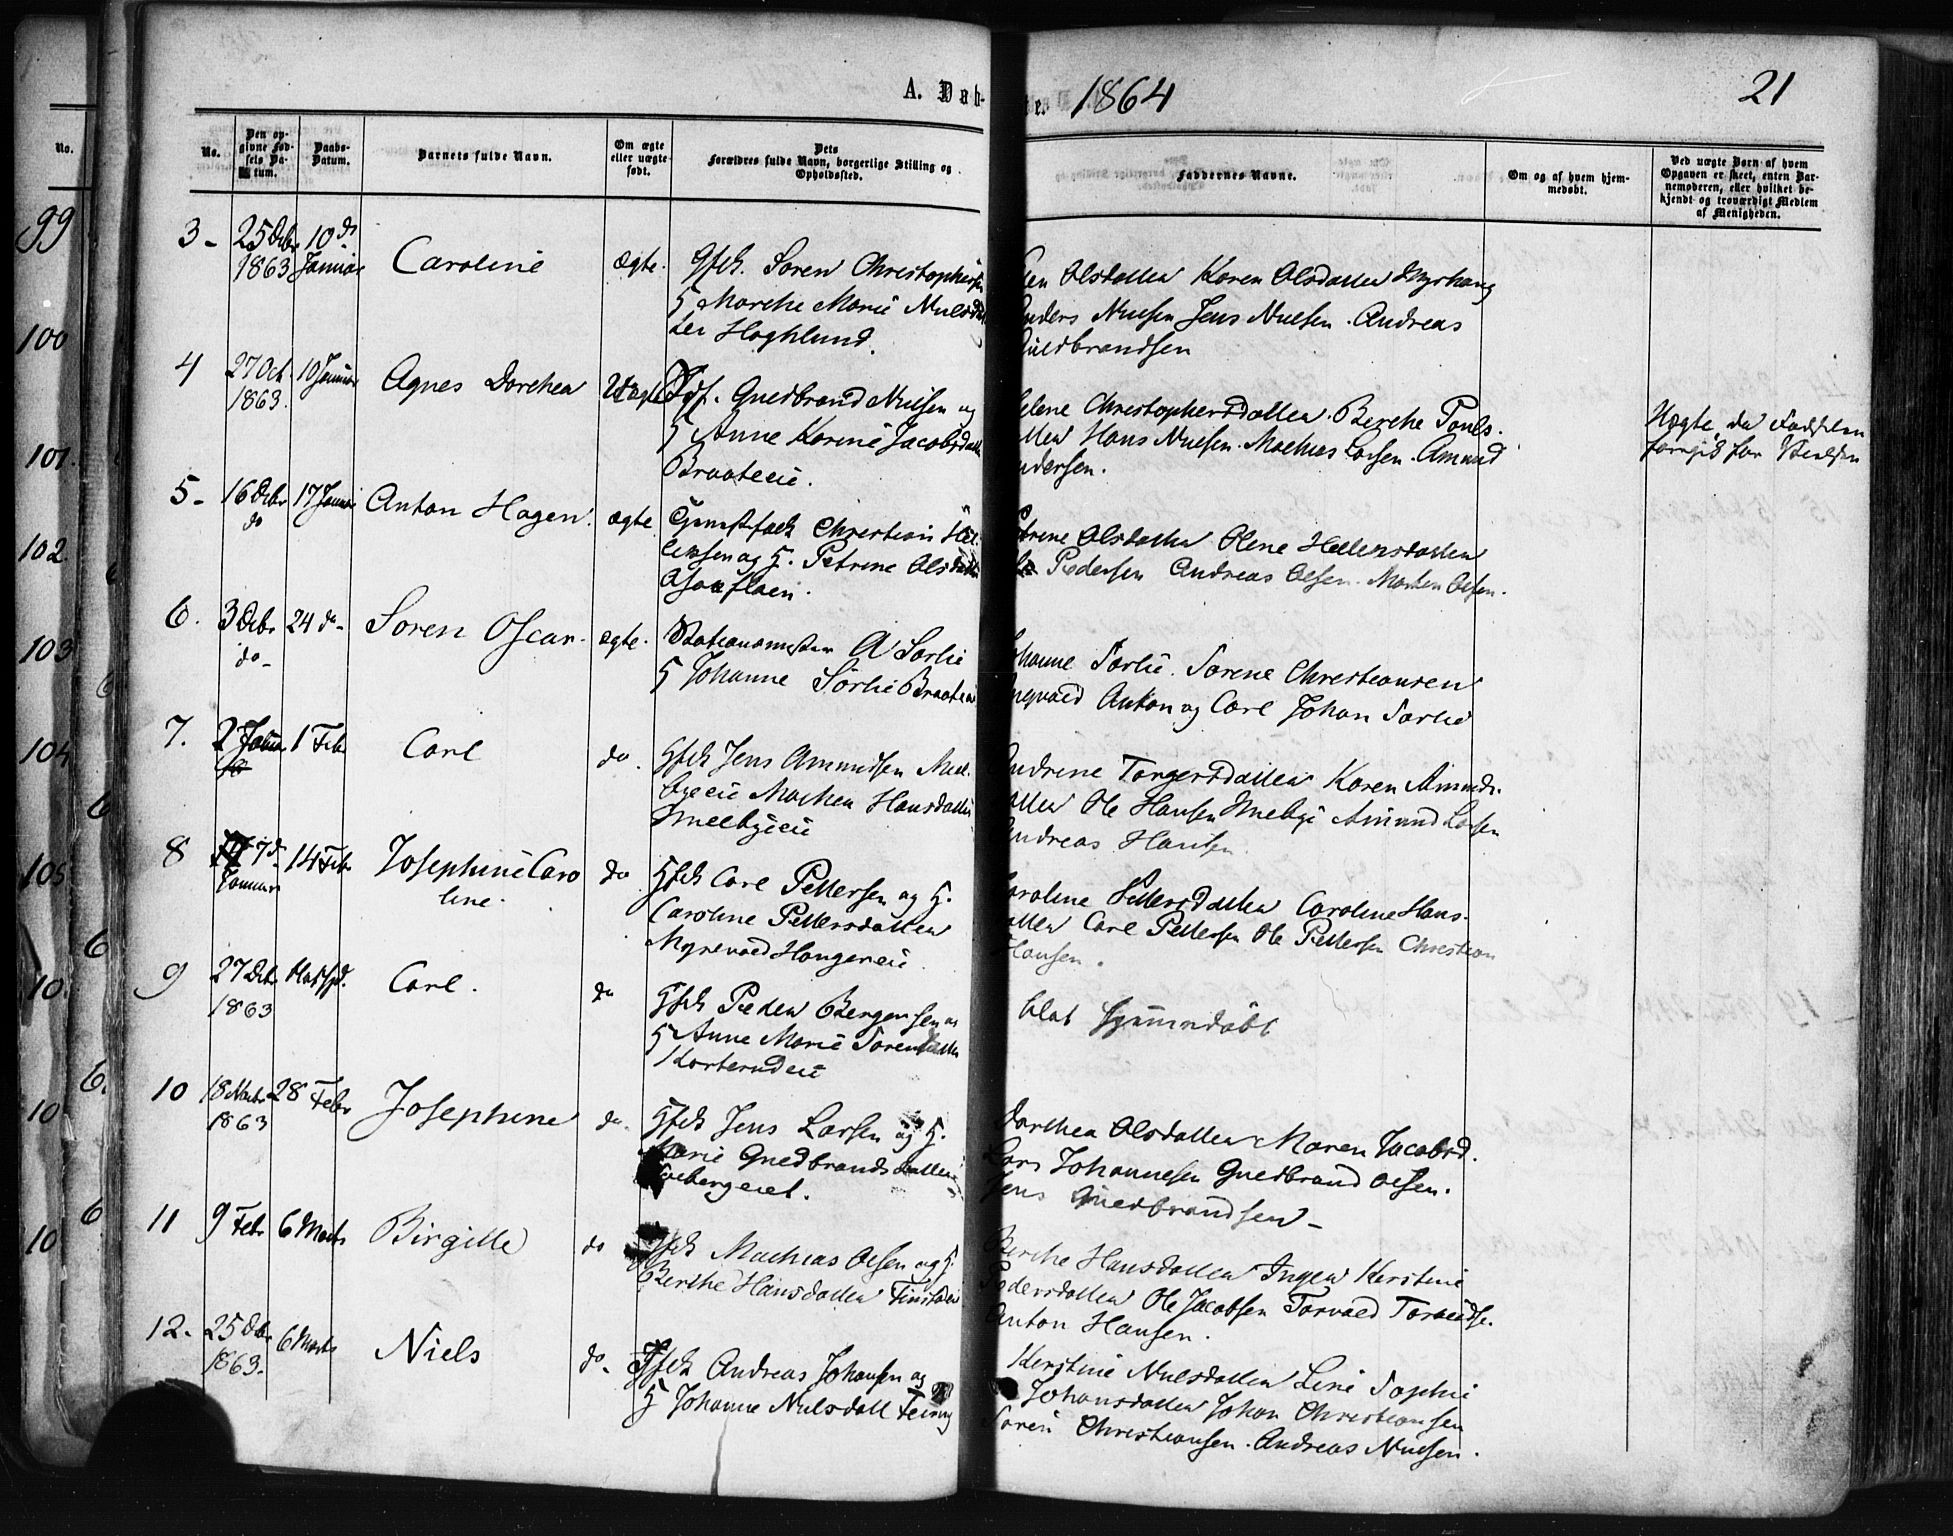 A. Døb-
te. 1864
21
No.
No.
Den op-
givne Fød-
sels Da-
tum.
Daabs-
Datum.
Barnets fulde Navn.
Om ægte
eller uægte
født.
Dets
Forældres fulde Navn, borgerlige Stilling og
Opholdssted.
Faddernes Navne.
Om og af hvem hjem-
medøbt.
Ved uægte Børn af hvem
Opgaven er skeet, enten Bar-
nemoderen, eller hvilket be-
kjendt og troværdigt Medlem
af Menigheden.
99
100
101
102
103
104
105
10
10
10
3 - 25 Debr 10 d
1863 Januar
Caroline
ægte.
Gfsk. Soren Christophersen
H Marthe Marie Nielsdat
ter Høghlund.
Olsdatter Karen Olsdatter Myrhaug
Anders Nielsen Jens Nielsen. Andreas
Guldbrandsen
4 27 Oct. 10 Januar
1863.
Agnes Dorthea
Uægte
Guldbrand Nielsen og
Anne Karine Jacobsdatt
Braateeie.
Helene Christophersdatter. Berthe Pouls-
datter Hans Nielsen. Mathias Larsen. Amund
Andersen.
Uægte da Fødselen
foregik før Vielsen
5 - 16 Debr 17 Januar
do
Anton Hagen.
ægte
Christian Hel-
lersen og H. Petrine Olsdatter
Petrine Olsdatter Olene Hellersdatter
Pedersen Andreas Olsen. Morten Olsen.
6. 3 Debr 24 do -
do -
Soren Oscar.
ægte.
Stationsmester A Sorlie
H Johanne Sorlie Braaten
Johanne Sorlie. Sorene Christiansen
Anton og Carl Johan Sorlie
7. 2 Januar 1 Febr
Carl
do.
Gfsk Jens Amundsen Mel-
byeeie Marthea Hansdatter
Smelbyeeie
Andrine Torgersdatter Karen Amunds-
datter Ole Hansen Smelbye Amund Larsen
Andreas Hansen
8 7 d. 14 Febr
Januar
Josephine Caro
line.
do
Gfsk Carl Pettersen og H.
Caroline Pettersdatter
Myrvold Haugereie
Caroline Pettersdatter Caroline Hans-
datter Carl Pettersen Ole Pettersen Christian
Hansen.
9 27 Debr
1863
Carl.
do
Gfsk Peder Bergersen og
H Anne Marie Sorensdatter
blot hjemmedøbt
10 18 Novbr 28 Febr
1863
Josephine
do.
Gfsk Jens Larsen og H.
Marie Guldbrandsdatter
Dorthea Olsdatter Maren Jacobsd.
Lars Johannesen Guldbrand Olsen.
Jens Guldbrandsen -
11 9 Febr 6 Marts
Birgitte
do
Gfsk Mathias Olsen og H.
Berthe Hansdatter Finstadeie
Berthe Hansdatter Inger Kirstine
Pedersdatter Ole Jacobsen Torvald Torvaldse.
Anton Hansen.
12. 25 Debr 6 Marts
1863.
Niels
do.
Gfsk Andreas Johansen og
H Johanne Nielsdatt Feiring
Kirstine Nielsdatter Line Sophie
Johansdatter Johan Christiansen
Soren Christiansen. Andreas Nielsen.